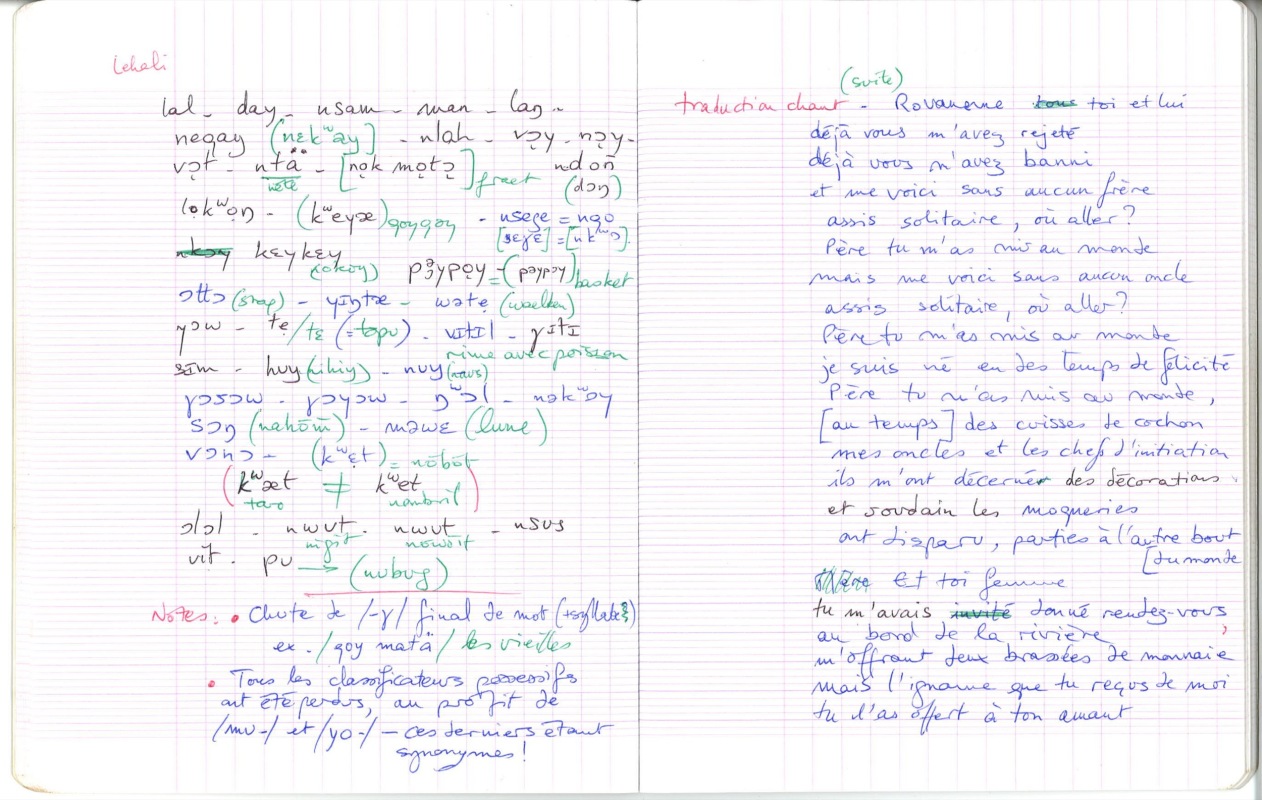 Lehali
lal - day - nsam - man - laŋ -
neqay (nɛkʷay] - nlah - və̣y - nə̣y -
və̣t - ntä - [nọk mọtə] fruct ndon̄
note (dɔŋ)
lọkʷọŋ - (kʷeyæ) qoyqoy - nsege = nqo
[sɛɣɛ] = [nkʷɔ].
kɛykɛy (okoy) pə̄ypọy = (pəypəy) basket
ɔttɔ (snap) - yɪŋtæ - wətẹ (waelken)
ɣɔw - tẹ/tɛ (=topu) - vɪtɪl - ɣɪtɪ
rime avec poisson
sɪm - huy (ihiy) - nuy (naus)
ɣɔsɔw - ɣɔyɔw - ŋʷɔl - nəkʷɔy
sɔŋ (nahōm̄) - məwɛ (lune)
vɔnɔ - (kʷɛt) = nōbōt
(kʷæt ≠ kʷet)
taro nombril
ɔlɔl - nwut - nwut - nsus
nīgīt nowōīt
vit - pu → (nubug)
Notes : • Chute de /-ɣ/ final de mot (+syllabe)
ex. /qoy matä/ les vieilles
• Tous les classificateurs possessifs
ont été perdus, au profit de
/mu-/ et /yo-/ - ces derniers étant
synonymes !
(suite)
traduction chant - Rovanenne tous toi et lui
déjà vous m'avez rejeté
déjà vous m'avez banni
et me voici sans aucun frère
assis solitaire, où aller ?
Père tu m'as mis au monde
mais me voici sans aucun oncle
assis solitaire, où aller ?
Père tu m'as mis au monde
je suis né en des temps de félicité
Père tu m'as mis au monde,
[au temps] des cuisses de cochon
mes oncles et les chefs d'initiation
ils m'ont décerné des décorations
et soudain les moqueries
ont disparu, parties à l'autre bout
[du monde
Et toi femme
tu m'avais invité donné rendez-vous
au bord de la rivière,
m'offrant deux brassées de monnaie
mais l'igname que tu reçus de moi
tu l'as offert à ton amant